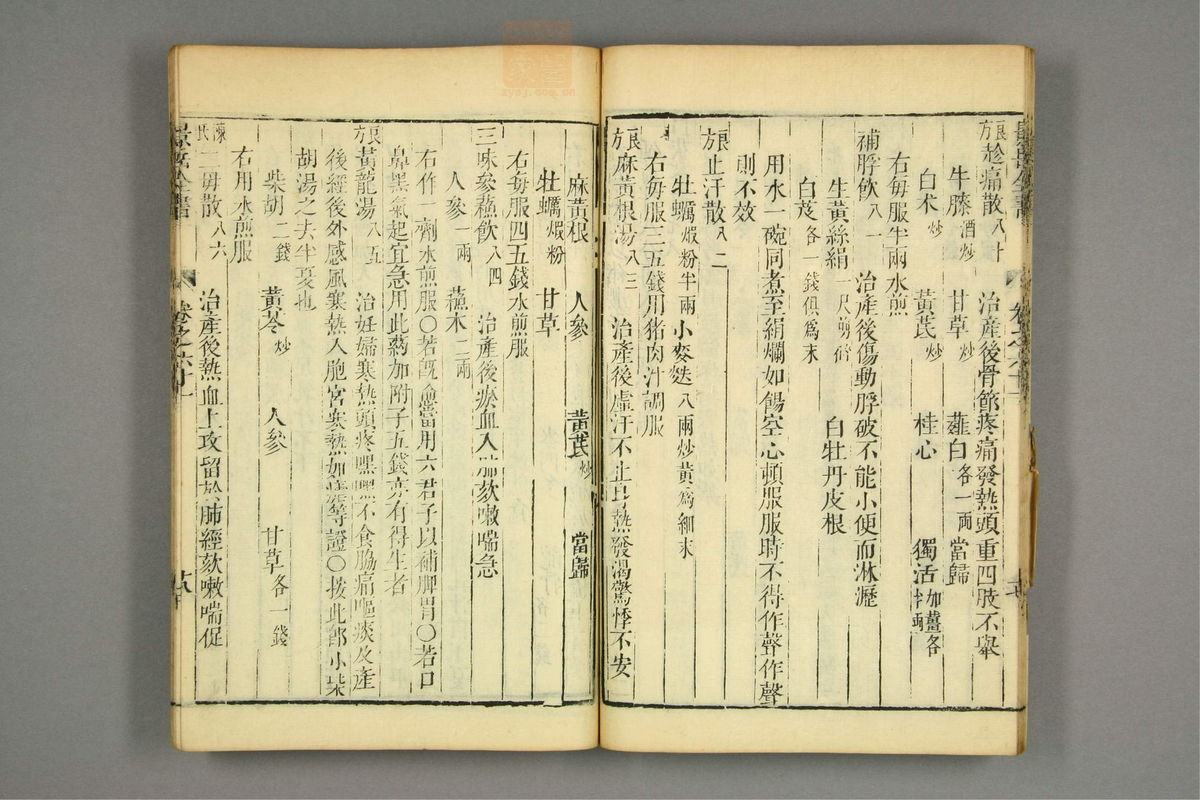 景岳全書
卷之六十一
良方 趁痛散 八十 治產後骨節疼痛發熱頭重四肢不舉
牛膝 酒炒 甘草 炒 薤白 各一兩 當歸
白朮 炒 黃芪 炒 桂心 獨活 加薑各半兩
右每服半兩水煎
補脬飲 八一 治產後傷動脬破不能小便而淋瀝
生黃絲絹 一尺剪碎 白牡丹皮根
白芨 各一錢俱爲末
用水一碗同煮至絹爛如餳空心頓服服時不得作聲作聲
則不效
良方 止汗散 八二
牡蠣 煆粉半兩 小麥麩 八兩炒黃爲細末
右每服三五錢用猪肉汁調服
良方 麻黃根湯 八三 治產後虛汗不止身熱發渴驚悸不安
麻黃根 人參 黃芪 炒 當歸
牡蠣 煆粉 甘草
右每服四五錢水煎服
三味參蘇飲 八四 治產後瘀血入肺欬嗽喘急
人參 一兩 蘇木 二兩
右作一劑水煎服○若旣愈當用六君子以補脾胃○若口
鼻黑氣起宜急用此藥加附子五錢亦有得生者
良方 黃龍湯 八五 治妊婦寒熱頭疼嘿嘿不食脇痛嘔痰及產
後經後外感風寒熱入胞宮寒熱如瘧等證○按此卽小柴
胡湯之去半夏也
柴胡 二錢 黃芩 炒 人參 甘草 各一錢
右用水煎服
陳氏 二母散 八六 治產後熱血上攻留於肺經欬嗽喘促
景岳全書
卷之六十一